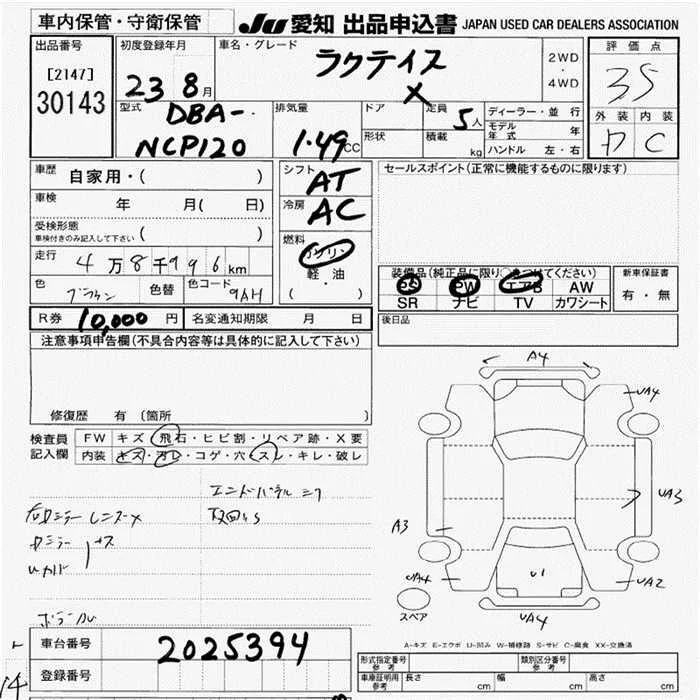 車内保管・守衛保管
JU 愛知 出品申込書 JAPAN USED CAR DEALERS ASSOCIATION
出品番号
[2147]
30143
初度登録年月
23 8月
車名・グレード
ラクティス
X
2WD
・
4WD
評価点
35
外装 内装
D C
型式
DBA-
NCP120
排気量
1.49CC
ドア
定員
5人
形状
積載
kg
ディーラー・並行
モデル年式 年
ハンドル 左・右
車歴 自家用・( )
車検 年 月( 日)
受検形態
車検付きのみ記入して下さい ( )
走行 4万8千996km
色 ブラウン 色替 色コード 9AH
シフト
AT
冷房
AC
燃料
ガソリン
軽・油
( )
セールスポイント(正常に機能するものに限ります)
装備品(純正品に限り○をつけてください)
PS PW エアB AW
SR ナビ TV カワシート
新車保証書
有・無
R券 10,000円 名変通知期限 月 日
後日品
注意事項申告欄(不具合内容等は具体的に記入して下さい)
修復歴 有 (箇所 )
検査員
記入欄
FW キズ・飛石・ヒビ割・リペア跡・X要
内装 キズ・汚レ・コゲ・穴・スレ・キレ・破レ
エンドパネル
ミラー レンズX
A4
UA4
UA3
A3
UA4
U1
UA2
スペア
UA4
A-キズ E-エクボ U-凹み W-補修跡 S-サビ C-腐食 XX-交換済
車台番号 2025394
登録番号
型式指定番号
参考
類別区分番号
参考
車庫証明用
参考
長さ cm 幅 cm 高さ cm